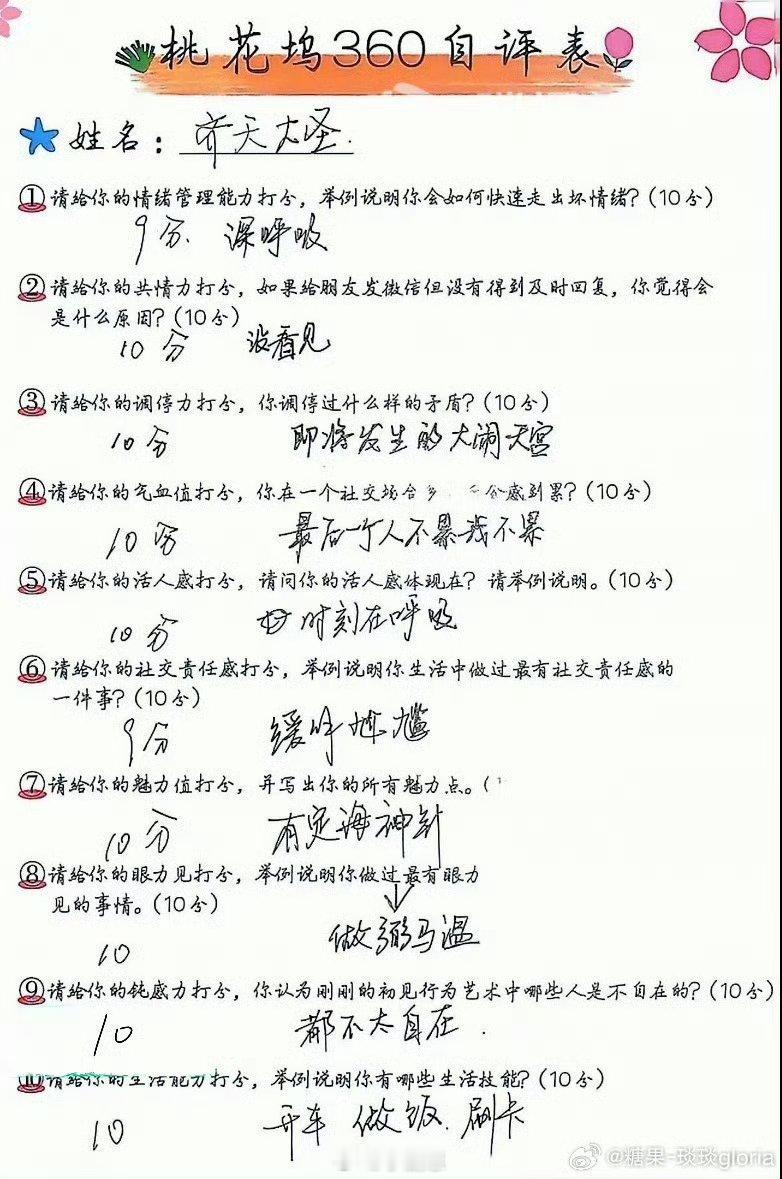 桃花坞360自评表
姓名：齐天大圣.
①请给你的情绪管理能力打分，举例说明你会如何快速走出坏情绪？(10分)
9分. 深呼吸
②请给你的共情力打分，如果给朋友发微信但没有得到及时回复，你觉得会
是什么原因？(10分)
10分 没看见
③请给你的调停力打分，你调停过什么样的矛盾？(10分)
10分 即将发生的大闹天宫
④请给你的气血值打分，你在一个社交场合多 感到累？(10分)
10分 最后一个人不累我不累
⑤请给你的活人感打分，请问你的活人感体现在？请举例说明。(10分)
10分 时刻在呼吸
⑥请给你的社交责任感打分，举例说明你生活中做过最有社交责任感的
一件事？(10分)
9分 缓解尴尬
⑦请给你的魅力值打分，并写出你的所有魅力点。(
10分 有定海神针
⑧请给你的眼力见打分，举例说明你做过最有眼力
见的事情。(10分)
10 做弼马温
⑨请给你的钝感力打分，你认为刚刚的初见行为艺术中哪些人是不自在的？(10分)
10 都不太自在.
⑩请给你的生活能力打分，举例说明你有哪些生活技能？(10分)
10 开车 做饭.刷卡
@糖果-琰琰gloria